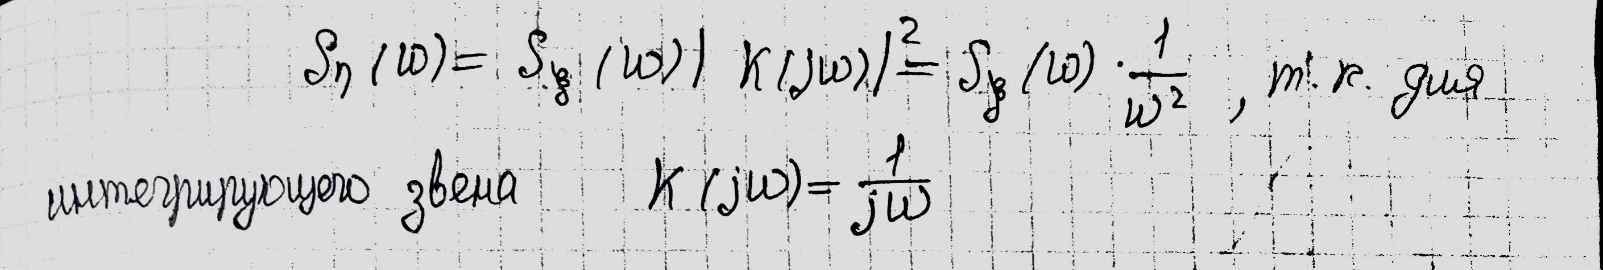 Sη(ω) = Sξ(ω) | K(jω)|² = Sξ(ω) · 1/ω² , т. к. для
интегрирующего звена K(jω) = 1/jω